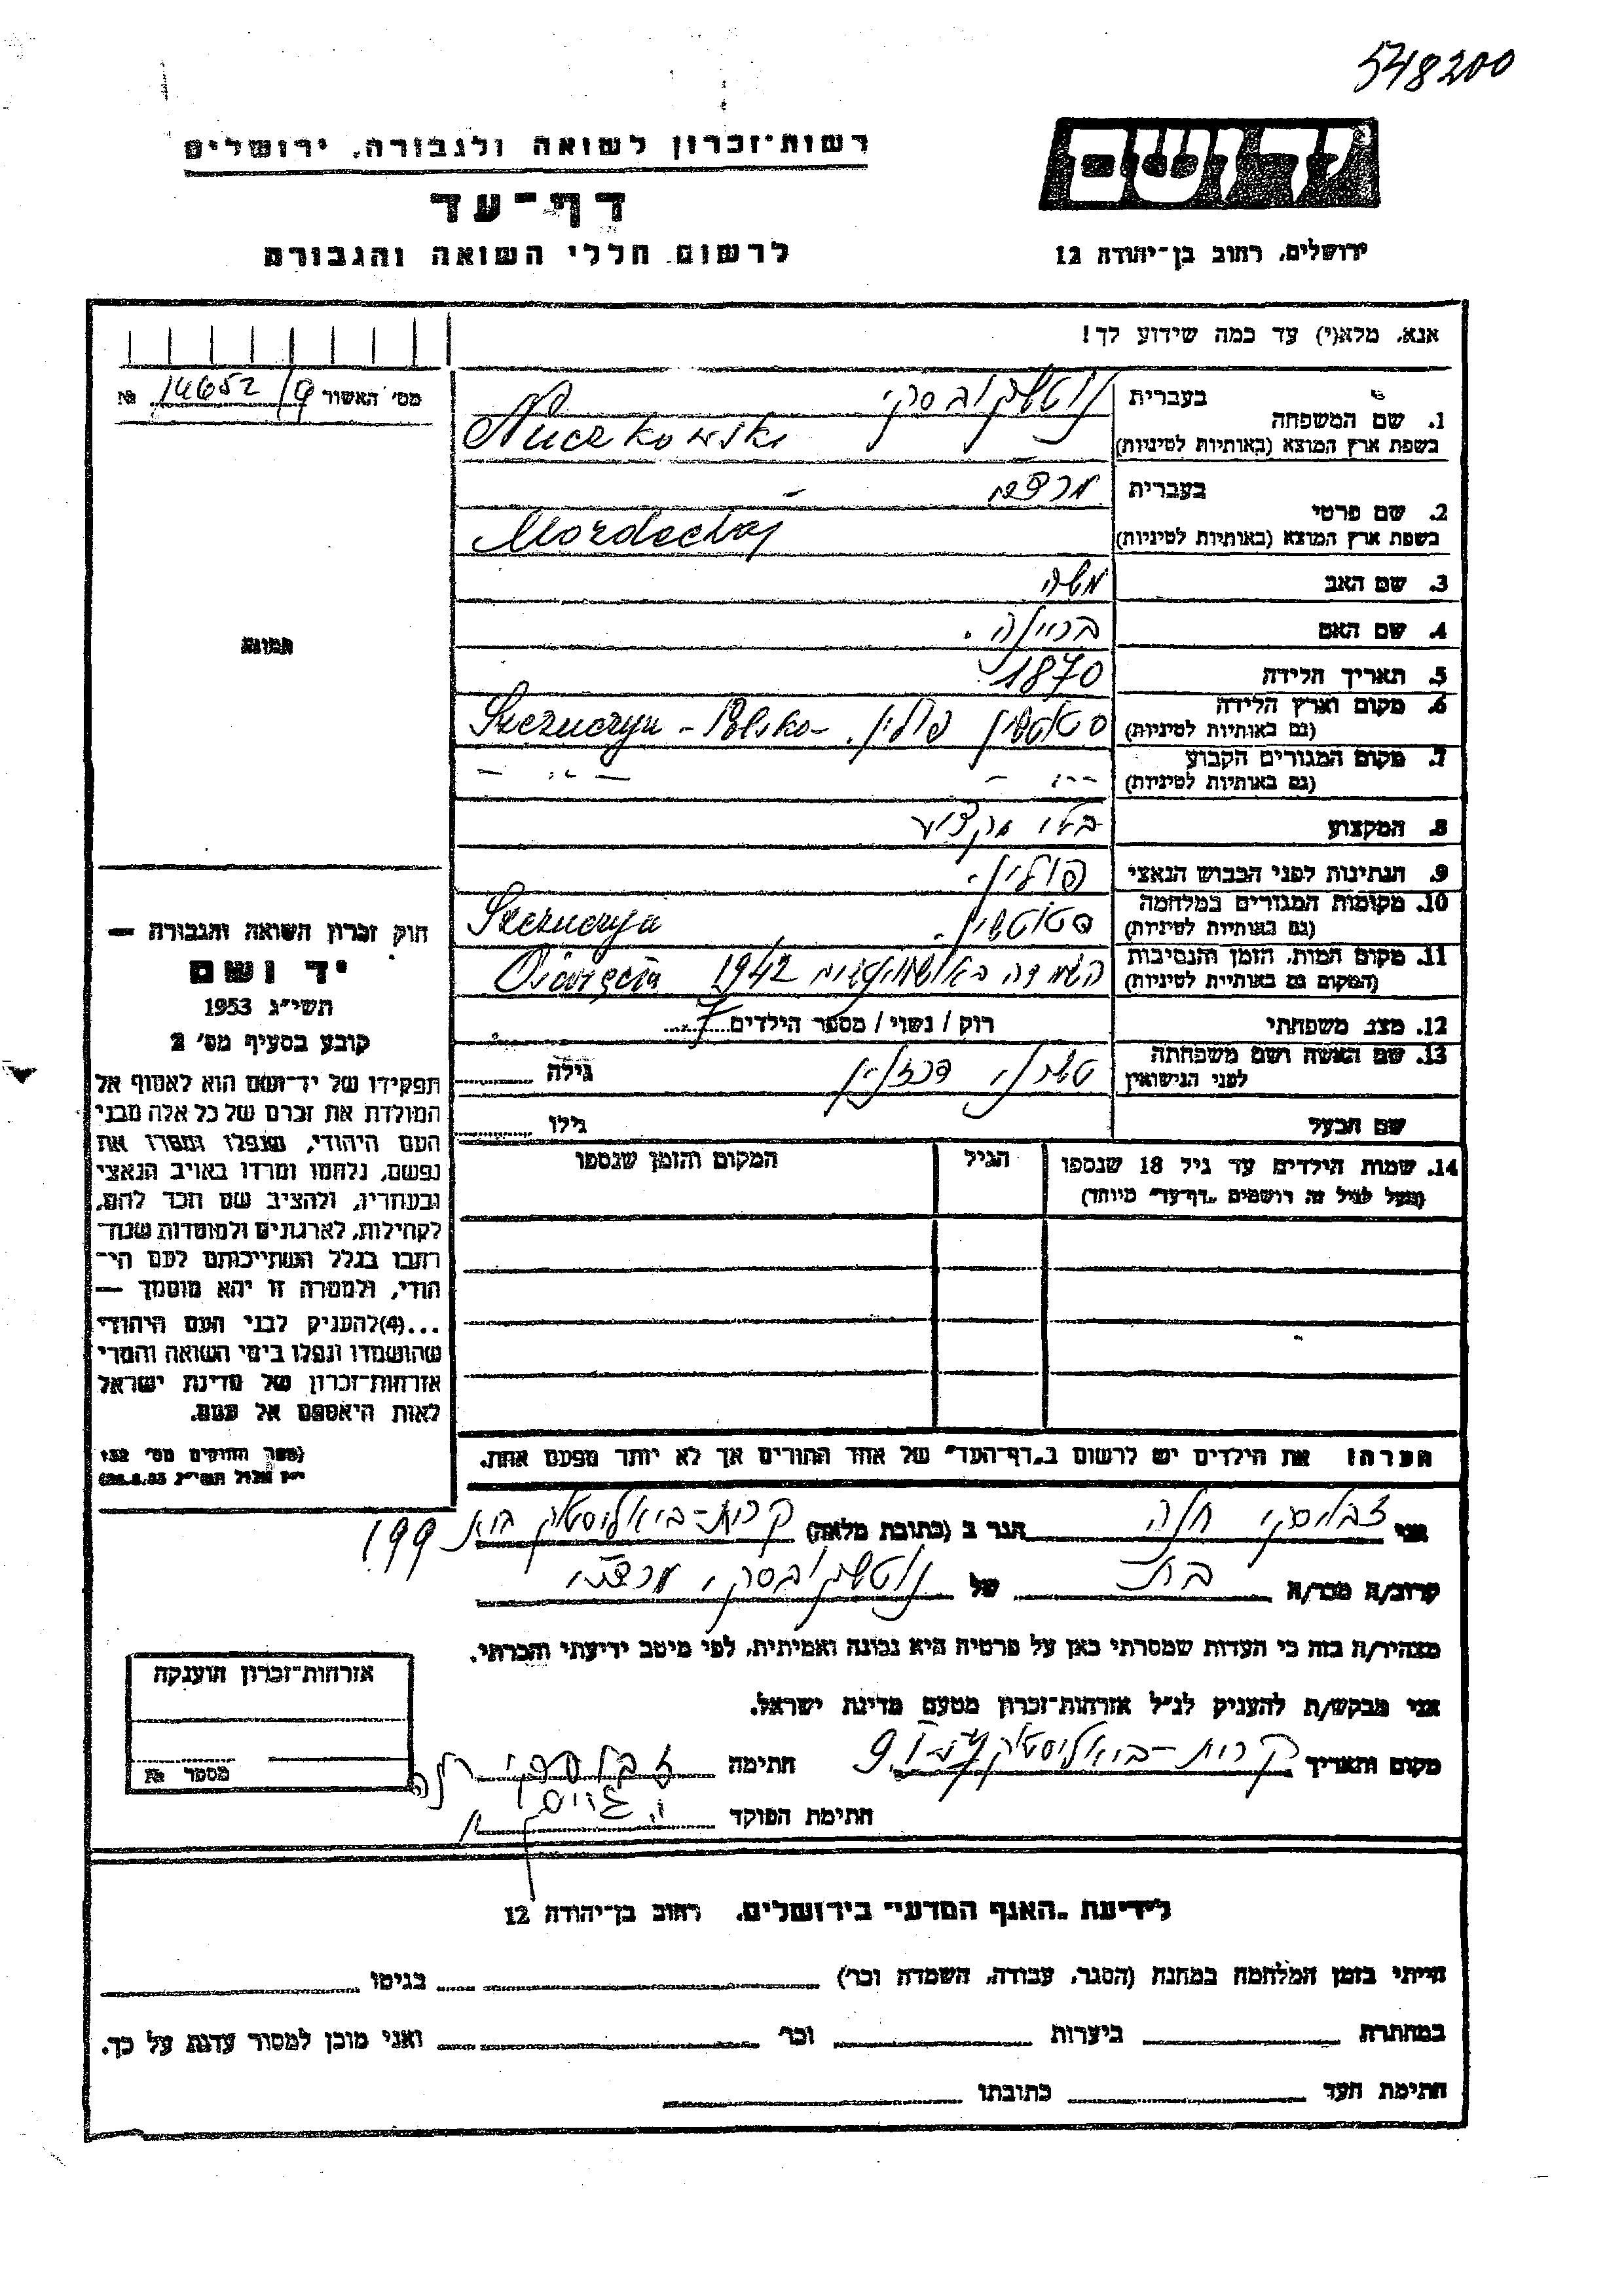 548200
יד ושם
רשות־זכרון לשואה ולגבורה, ירושלים
דף־עד
לרשום חללי השואה והגבורה
ירושלים, רחוב בן־יהודה 12
אנא, מלא(י) עד כמה שידוע לך!
מס׳ האשור 14652/9 №
בעברית נוטשקובסקי
1. שם המשפחה
בשפת ארץ המוצא (באותיות לטיניות) Nuczkowski
בעברית מרדכי
2. שם פרטי
בשפת ארץ המוצא (באותיות לטיניות) Mordechaj
3. שם האב משה
4. שם האם ביילה
5. תאריך הלידה 1870
6. מקום וארץ הלידה
(גם באותיות לטיניות) פולין. Szczuczyn - Polsko -
7. מקום המגורים הקבוע
(גם באותיות לטיניות)
8. המקצוע
9. הנתינות לפני הכבוש הנאצי פולין.
10. מקומות המגורים במלחמה
(גם באותיות לטיניות) Szczuczyn
11. מקום המות, הזמן והנסיבות
(המקום גם באותיות לטיניות) 1942
12. מצב משפחתי רוק / נשוי / מספר הילדים 7
13. שם האשה ושם משפחתה
לפני הנישואין גילה
שם הבעל גילו
14. שמות הילדים עד גיל 18 שנספו הגיל המקום והזמן שנספו
(מעל לגיל זה רושמים „דף־עד״ מיוחד)
תמונה
חוק זכרון השואה והגבורה —
יד ושם
תשי״ג 1953
קובע בסעיף מס׳ 2
תפקידו של יד־ושם הוא לאסוף אל
המולדת את זכרם של כל אלה מבני
העם היהודי, שנפלו ומסרו את
נפשם, נלחמו ומרדו באויב הנאצי
ובעוזריו, ולהציב שם וזכר להם,
לקהילות, לארגונים ולמוסדות שנח־
רבו בגלל השתייכותם לעם הי־
הודי, ולמטרה זו יהא מוסמך —
...(4)להעניק לבני העם היהודי
שהושמדו ונפלו בימי השואה והמרי
אזרחות־זכרון של מדינת ישראל
לאות היאספם אל עמם.
(ספר החוקים מס׳ 132
י״ז אלול תשי״ג 28.8.53)
הערה: את הילדים יש לרשום ב„דף־העד״ של אחד ההורים אך לא יותר מפעם אחת.
אני זבלוסקי חנה הגר ב (כתובת מלאה) קרית-ביאליסטוק 199
קרוב/ה מכר/ה בת של נוטשקובסקי מרדכי
מצהיר/ה בזה כי העדות שמסרתי כאן על פרטיה היא נכונה ואמיתית, לפי מיטב ידיעתי והכרתי.
אני מבקש/ת להעניק לנ״ל אזרחות־זכרון מטעם מדינת ישראל.
מקום ותאריך קרית-ביאליסטוק חתימה זבלוסקי
חתימת הפוקד
אזרחות־זכרון הוענקה
מספר №
לידיעת „האגף המדעי״ בירושלים, רחוב בן־יהודה 12
הייתי בזמן המלחמה במחנה (הסגר, עבודה, השמדה וכו׳) בגיטו
במחתרת ביערות וכו׳ ואני מוכן למסור עדות על כך.
חתימת העד כתובתו